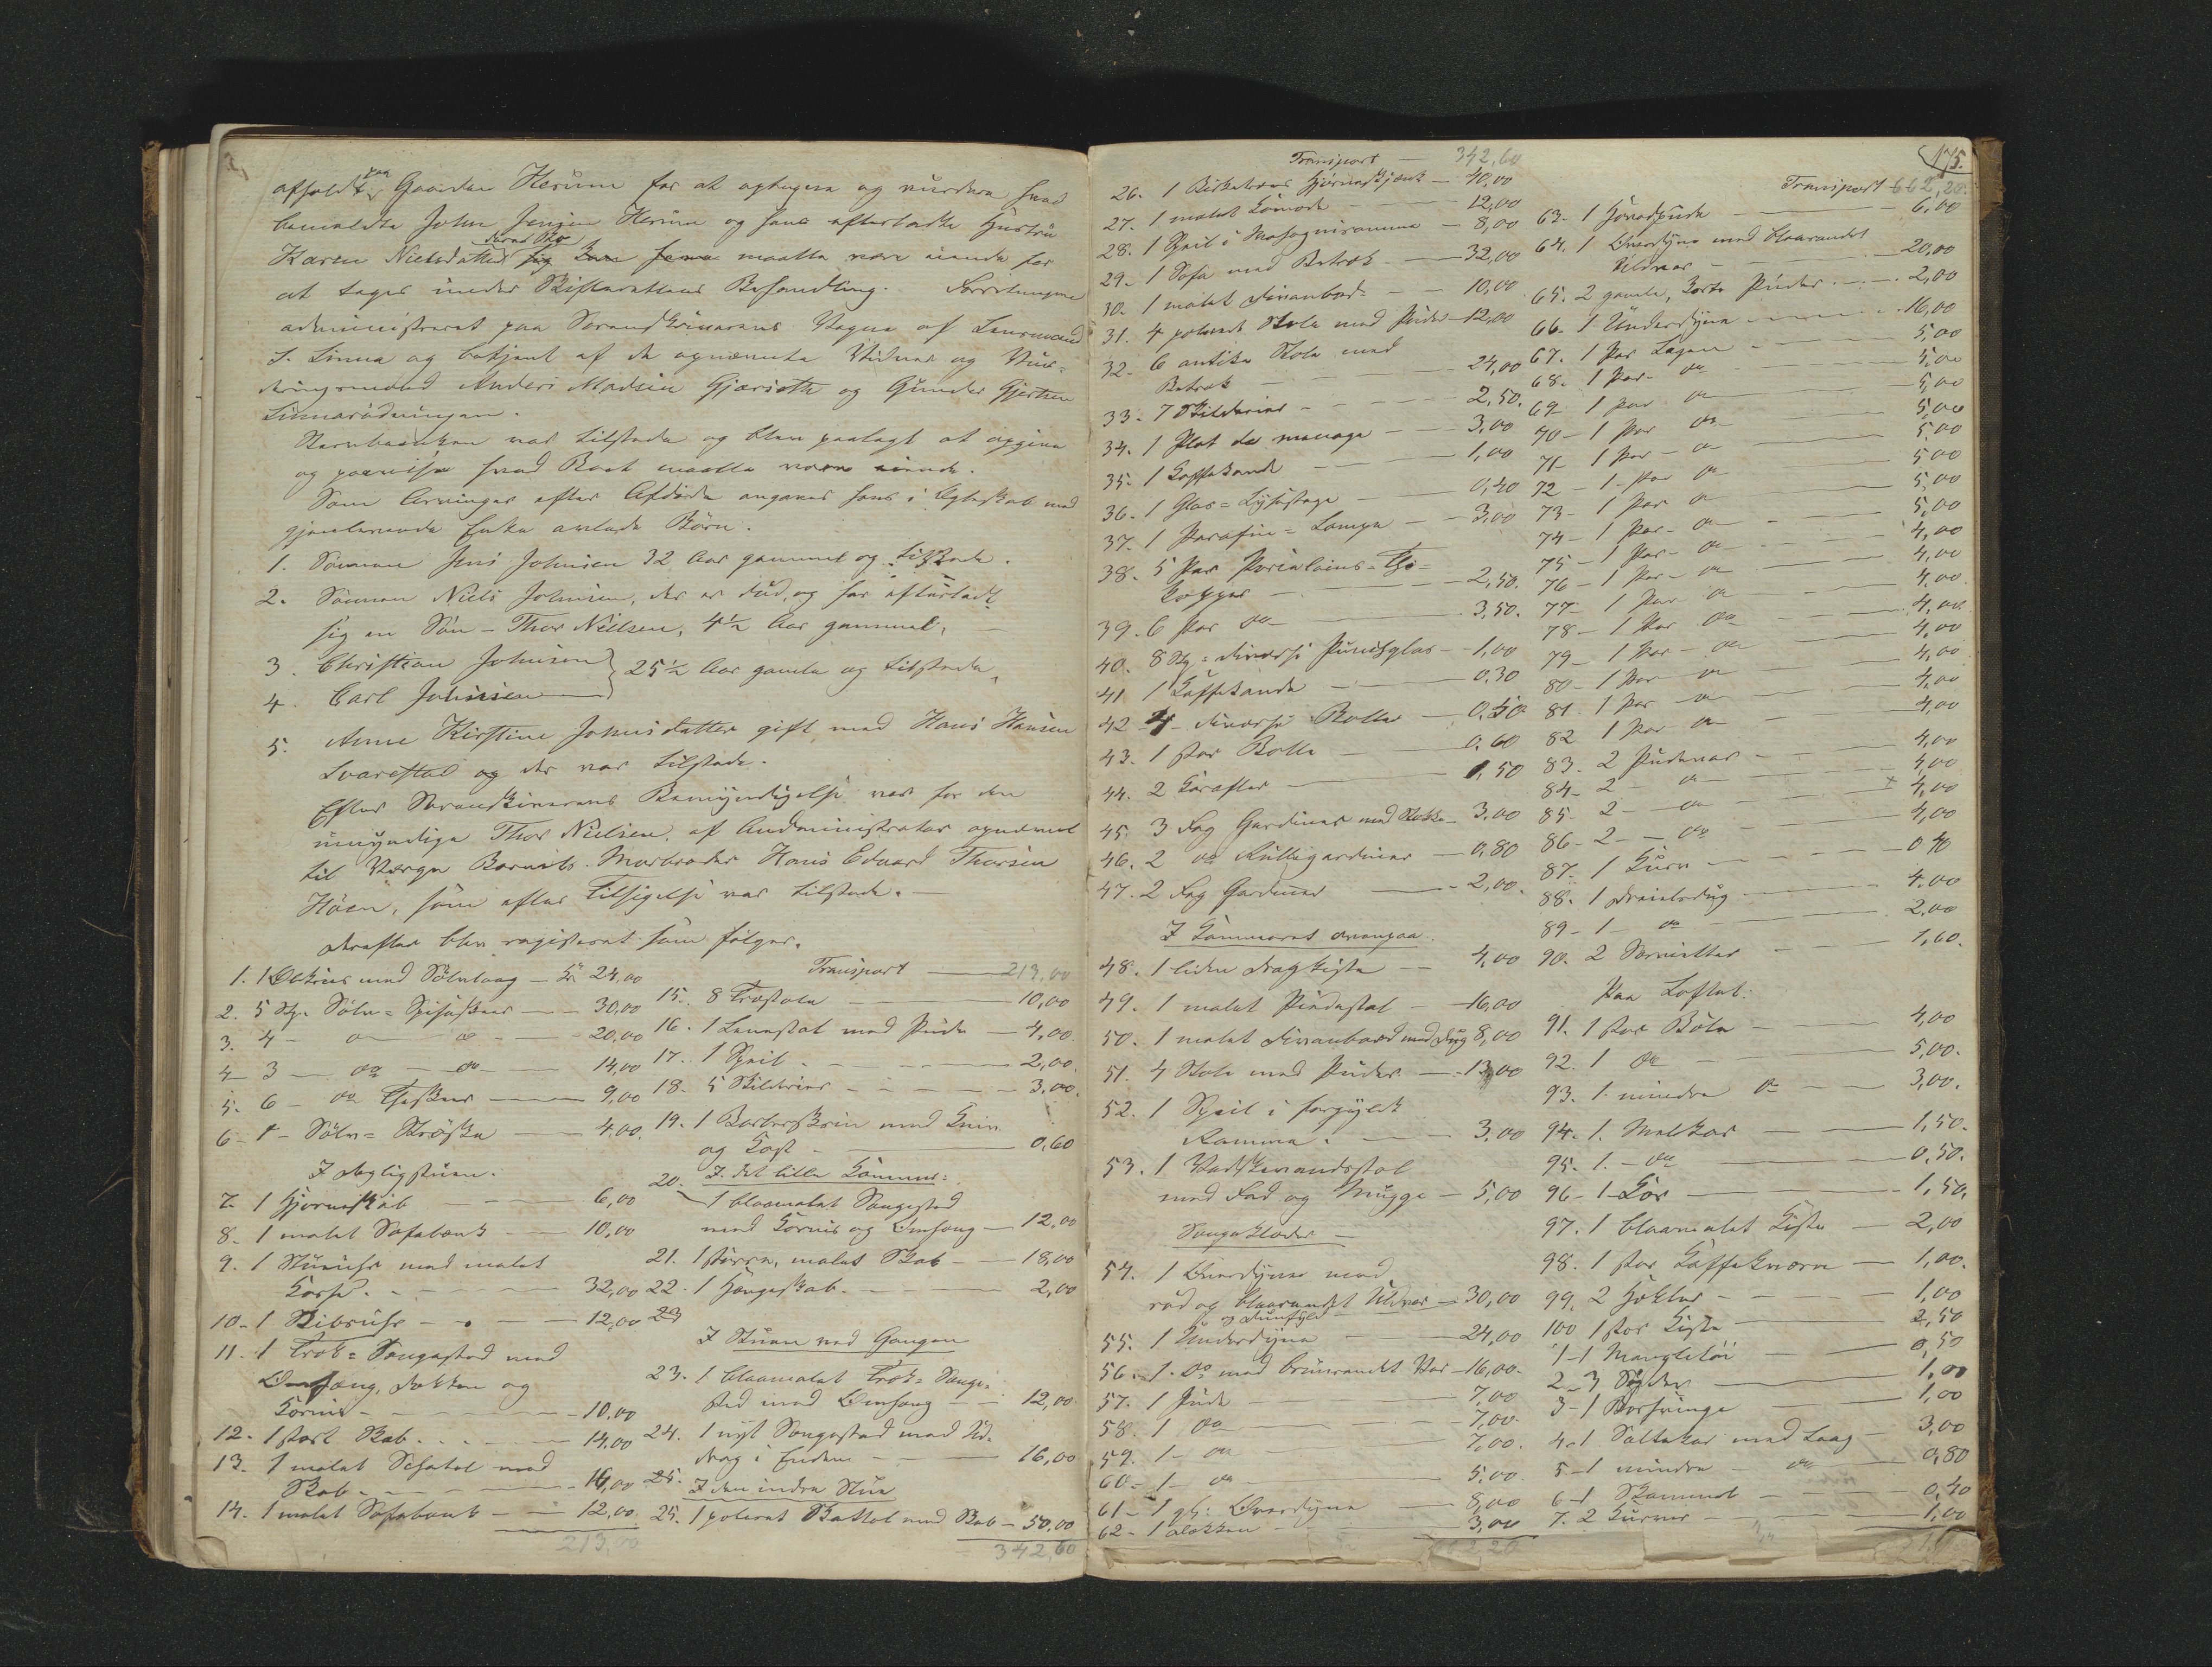 afholdt paa Gaarden Herum for at optegne og vurdere hvad
bemeldte John Jensen Herum og hans efterladte Hustru
Karen Nielsdatter deres Bo maatte være eiende for
at tages under Skifterettens Behandling. Forretningen
administreret paa Sorenskriverens Vegne af Lensmand
S. Linna og betjent af de opnævnte Vidner og Vur-
deringsmænd Anders Madsen Gjærsøth og Gunder Gjertsen
Linnarødningen.
Sterbenken var tilstede og blev paalagt at opgive
og paavise hvad Boet maatte være eiende.
Som Arvinger efter Afdøde angaves hans i Ægteskab med
gjenlevende Enke avlede Børn.
1. Sønnen Jens Johnsen 32 Aar gammel og tilstede.
2. Sønnen Niels Johnsen, der er død, og har efterladt
sig en Søn - Thor Nielsen, 4½ Aar gammel,
3. Christian Johnsen } 25½ Aar gamle og tilstede,
4. Carl Johnsen
5. Anne Kirstine Johnsdatter gift med Hans Hansen
Svarestad og der var tilstede.
Efter Sorenskriverens Bemyndigelse var for den
umyndige Thor Nielsen, af Administrator opnævnt
til Værge Barnets Morbroder Hans Edvard Thorsen
Høen, som efter Tilsigelse var tilstede.
Derefter blev registeret som følger.
1. 1 Ølkrus med Sølvlaag - Kr 24,00
2. 5 Stk. Sølv-Spiseskeer - 30,00
3. 4 - do do - 20,00
4 3 - do - do - 14,00
5. 6 - do Theskeer - 9,00
6 - 1 - Sølv-Strøske - 4,00.
I Dagligstuen.
7. 1 Hjørneskab - 6,00
8. 1 malet Sofabænk - 10,00
9. 1 Stueuhr med malet
Kasse. - 32,00
10. 1 Stibruhr - 12,00
11. 1 Træk-Sengested med
Omhæng, Dækken og
Kornis - 10,00
12. 1 stort Skab. - 14,00
13. 1 malet Schatol med
Skab - 16,00
14. 1 malet Sofabænk - 12,00
213,00
Transport - 213,00
15. 8 Træstole - 10,00
16. 1 Lænestol med Pude - 4,00
17. 1 Speil - 2,00.
18. 5 Skilderier - 3,00.
19. 1 Barberskrin med Kniv
og Kost - 0,60
20. I det lille Kammer:
1 blaamalet Sengested
med Kornis og Omhæng - 12,00
21. 1 større, malet Skab - 18,00
22. 1 Hængeskab. - 2,00
23
I Stuen ved Gangen
23. 1 blaamalet Træk-Senge-
sted med Omhæng - 12,00
24. 1 nyt Sengested med Ud-
drag i Enden - 16,00
25. I den indre Stue
25. 1 poleret Skattol med Skab - 50,00
342,60
Transport - 342,60
26. 1 Birketræs Hjørneskjænk - 40,00
27. 1 malet Komode - 12,00
28. 1 Speil i Mahogniramme - 8,00
29. 1 Sofa med Betræk - 32,00
30. 1 malet Divanbord - 10,00
31. 4 polerede Stole med Puder - 12,00
32. 6 antike Stole med
Betræk - 24,00
33. 7 Skilderier - 2,50.
34. 1 Plat de menage - 3,00
35. 1 Kaffekande - 1,00
36. 1 Glas-Lysestage - 0,40
37. 1 Parafin-Lampe - 3,00
38. 5 Par Porcelains-The-
Kopper - 2,50.
39. 6 Par do - 3,50.
40. 8 Stk. diverse Punchglas - 1,00
41. 1 Kaffekande - 0,30
42 4 - diverse Boller - 0,50
43. 1 stor Bolle - 0,60
44. 2 Karafler - 1,50
45. 3 Fag Gardiner med Stokke - 3,00
46. 2 do Rullegardiner - 0,80
47. 2 Fag Gardiner - 2,00.
I Kammeret ovenpaa.
48. 1 liden Dragkiste - 4,00
49. 1 malet Pindestol - 16,00
50. 1 malet Divanbord med Dug 8,00
51. 4 Stole med Puder - 13,00
52. 1 Speil i forgyldt
Ramme. - 3,00
53. 1 Vaskevandsstol
med Fad og Mugge - 5,00
Sengeklæder -
54. 1 Overdyne med
rød og blaarandet Uldvar - 30,00
og Dunfyld
55. 1 Underdyne - 24,00
56. 1. do med brunrandet Var - 16,00.
57. 1 Pude - 7,00
58. 1 do - 7,00.
59. 1 - do - 7,00.
60 - 1 - do - 5,00.
61 - 1 gl: Overdyne - 8,00
62 - 1 Dækken - 3,00
662,20
175.
Transport 662,20.
63 - 1 Hovedpude - 6,00
64. 1 Overdyne med blaarandet
Uldvar - 20,00
65. 2 gamle, korte Puder - 2,00
66. 1 Underdyne - 16,00
67. 1 Par Lagen - 5,00
68. 1 Par - do - 5,00
69 - 1 Par do - 5,00
70 - 1 Par do - 5,00
71 - 1 Par - do - 5,00
72 - 1 - Par do - 5,00
73 - 1 Par do - 5,00
74 - 1 Par - do - 5,00
75 - 1 Par - do - 4,00
76 - 1 Par - do - 4,00
77 - 1 Par do - 4,00.
78 - 1 Par do - 4,00.
79 - 1 Par - do - 4,00
80 - 1 Par do - 4,00
81. 1 Par - do - 4,00
82 1 Par do - 4,00
83. 2 Pudevar - 4,00
84 - 2 - do - 4,00
85. 2 - do - 4,00
86 - 2 - do - 4,00
87. 1 Kurv - 0 40
88. 1 Dreielsdug - 4,00
89 - 1 - do - 2,00
90. 2 Servietter - 1,60.
Paa Loftet:
91. 1 stor Bøle - 4,00
92. 1 do - 5,00.
93. 1. mindre do - 3,00.
94. 1. Maltkar - 1,50.
95. 1. - do - 0,50.
96 - 1 - Kar - 1,50.
97. 1 blaamalet Kiste - 2,00
98. 1 stor Kaffekværn - 1,00.
99. 2 Hækler - 1,00
100 1 stor Kiste - 2,50
1 - 1 Mangletøi - 0,50
2 - 3 Sigter - 1,00
3 - 1 - 1,00
4 - 1 Saltekar med Laag - 3,00
5 - 1 mindre do - 0,80
6 - 1 Skammel - 0,40
7. 2 Kurver - 1,00